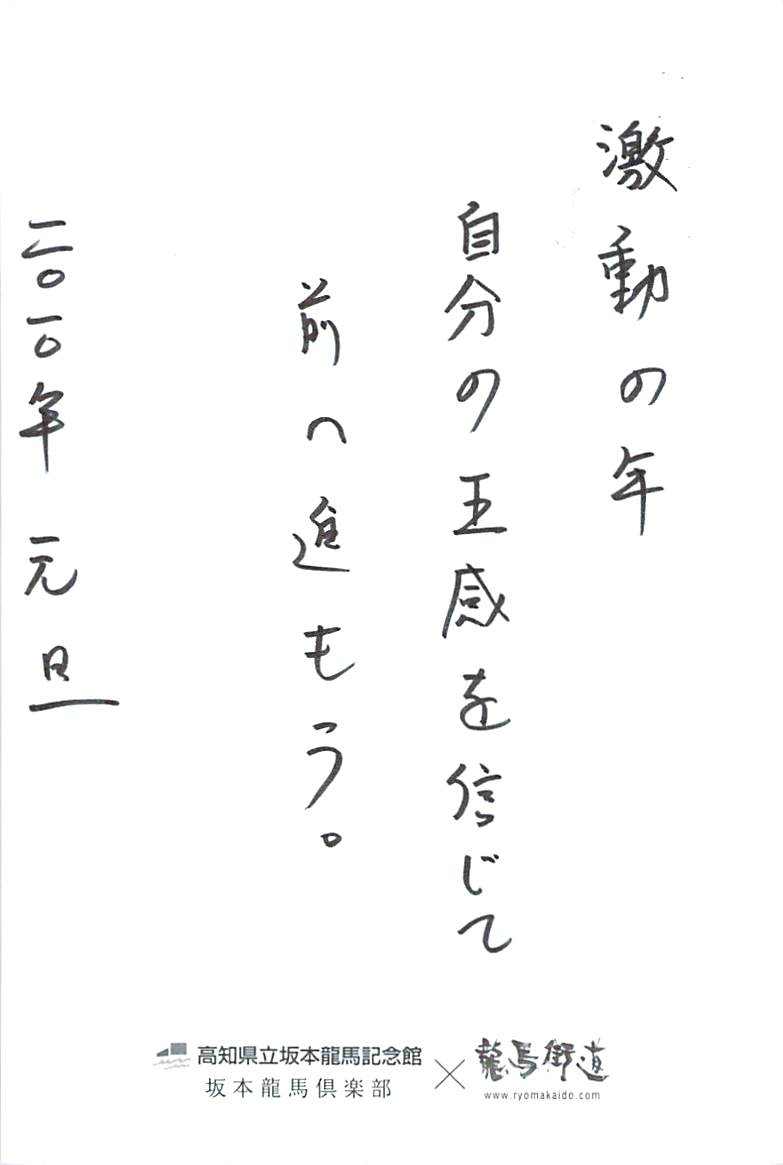 激動の年
自分の王感を信じて
前へ進もう。
二〇一〇年 元旦
高知県立坂本龍馬記念館
坂本龍馬倶楽部
×
龍馬街道
www.ryomakaido.com